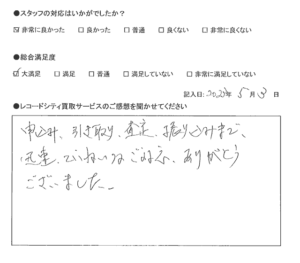 ●スタッフの対応はいかがでしたか？
☑非常に良かった □良かった □普通 □良くない □非常に良くない
●総合満足度
☑大満足 □満足 □普通 □満足していない □非常に満足していない
記入日: 2023年 5月 3日
●レコードシティ買取サービスのご感想を聞かせてください
申込み、引き取り、査定、振り込みまで、
迅速、ていねいなご対応、ありがとう
ございました。